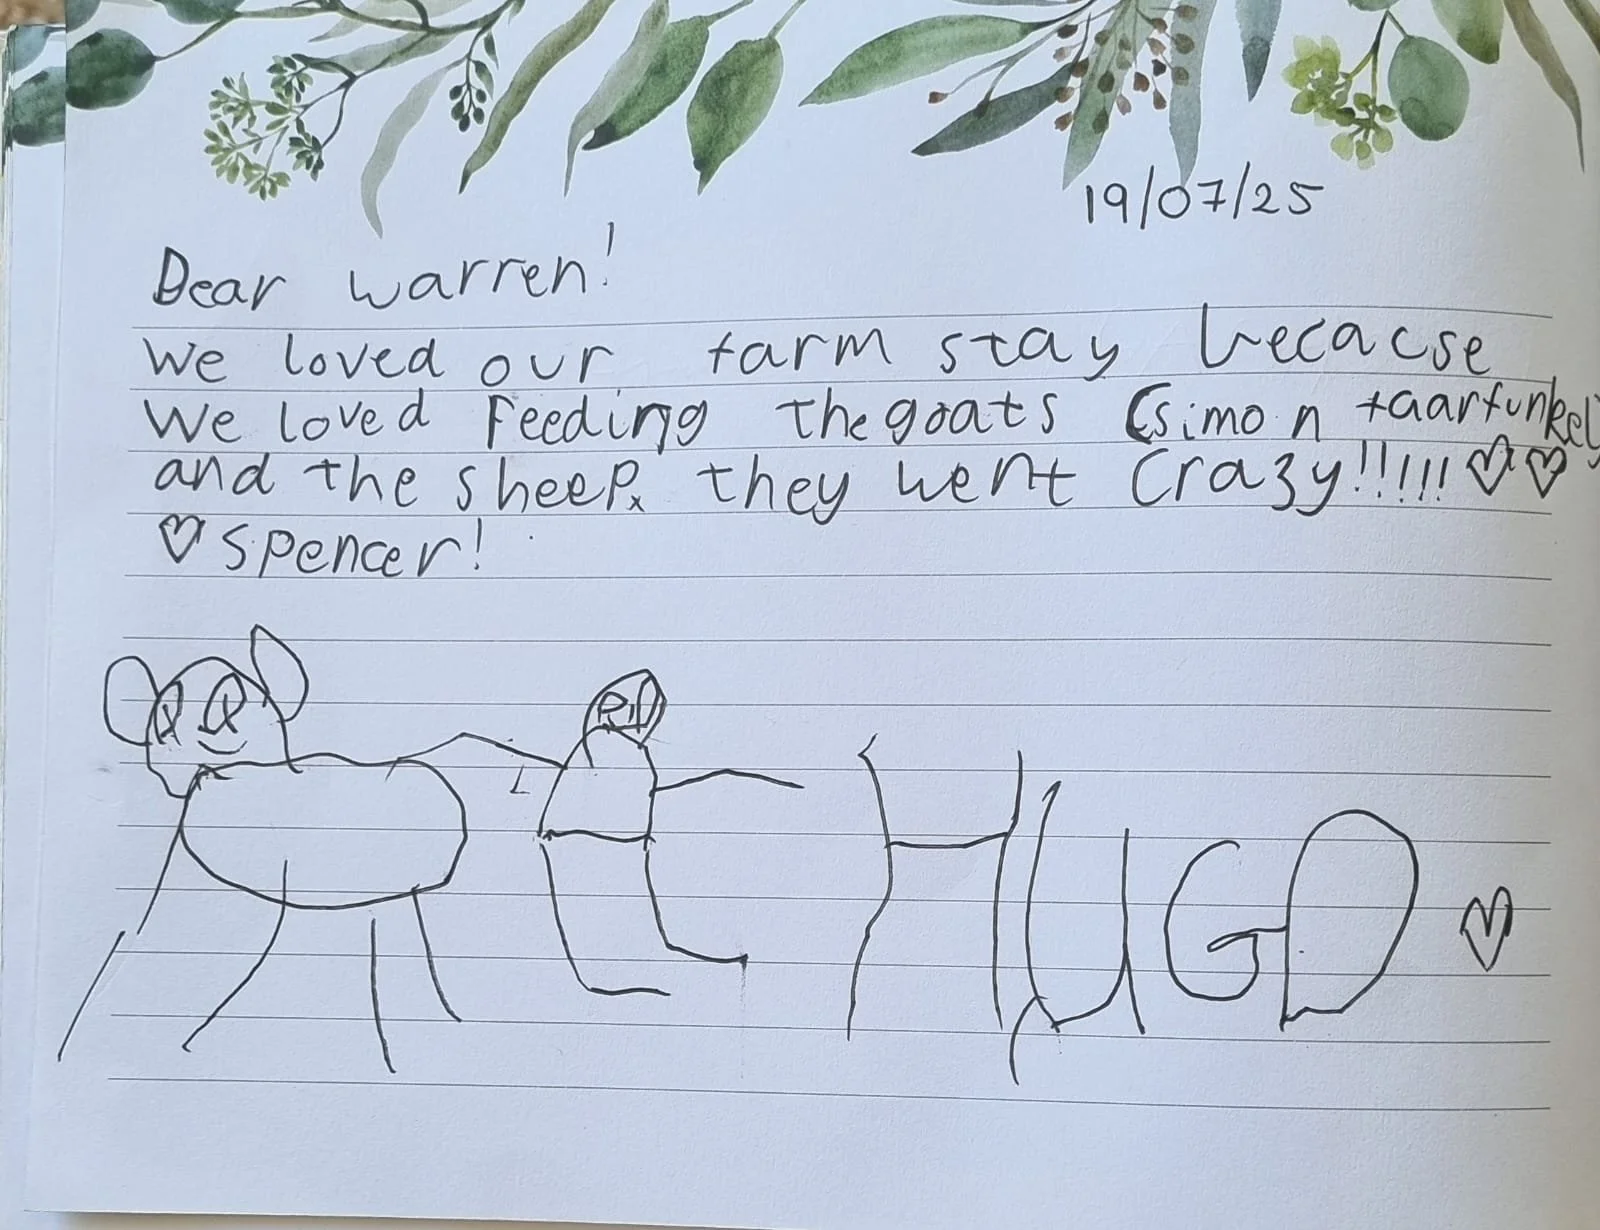 19/07/25
Dear warren!
We loved our farm stay becacse
We loved Feeding the goats (simon + aarfunkel)
and the sheep. they went Crazy!!!!!! ♡♡
♡ Spencer!
HUGO ♡